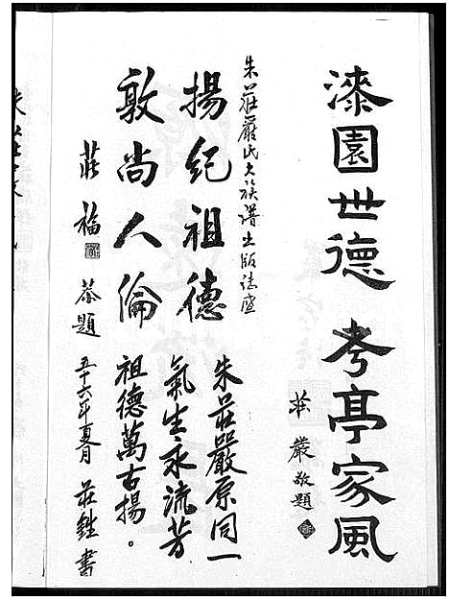 漆園世德 考亭家風
莊嚴敬題
朱莊嚴氏大族譜出版誌盛
揚紀祖德
敦尚人倫
莊福 恭題
朱莊嚴原同一
氣生永流芳
祖德萬古揚。
五十六年夏月 莊銼書